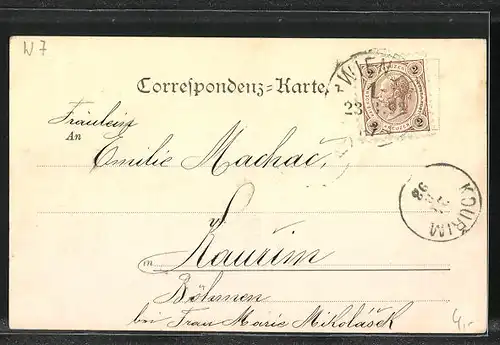 W 7
Correspondenz=Karte.
WIEN
1
23
2 2
Fräulein
An Emilie Machač,
Kaurim
in
Böhmen
bei Frau Marie Mikolášek
KOUŘIM
98
4,-